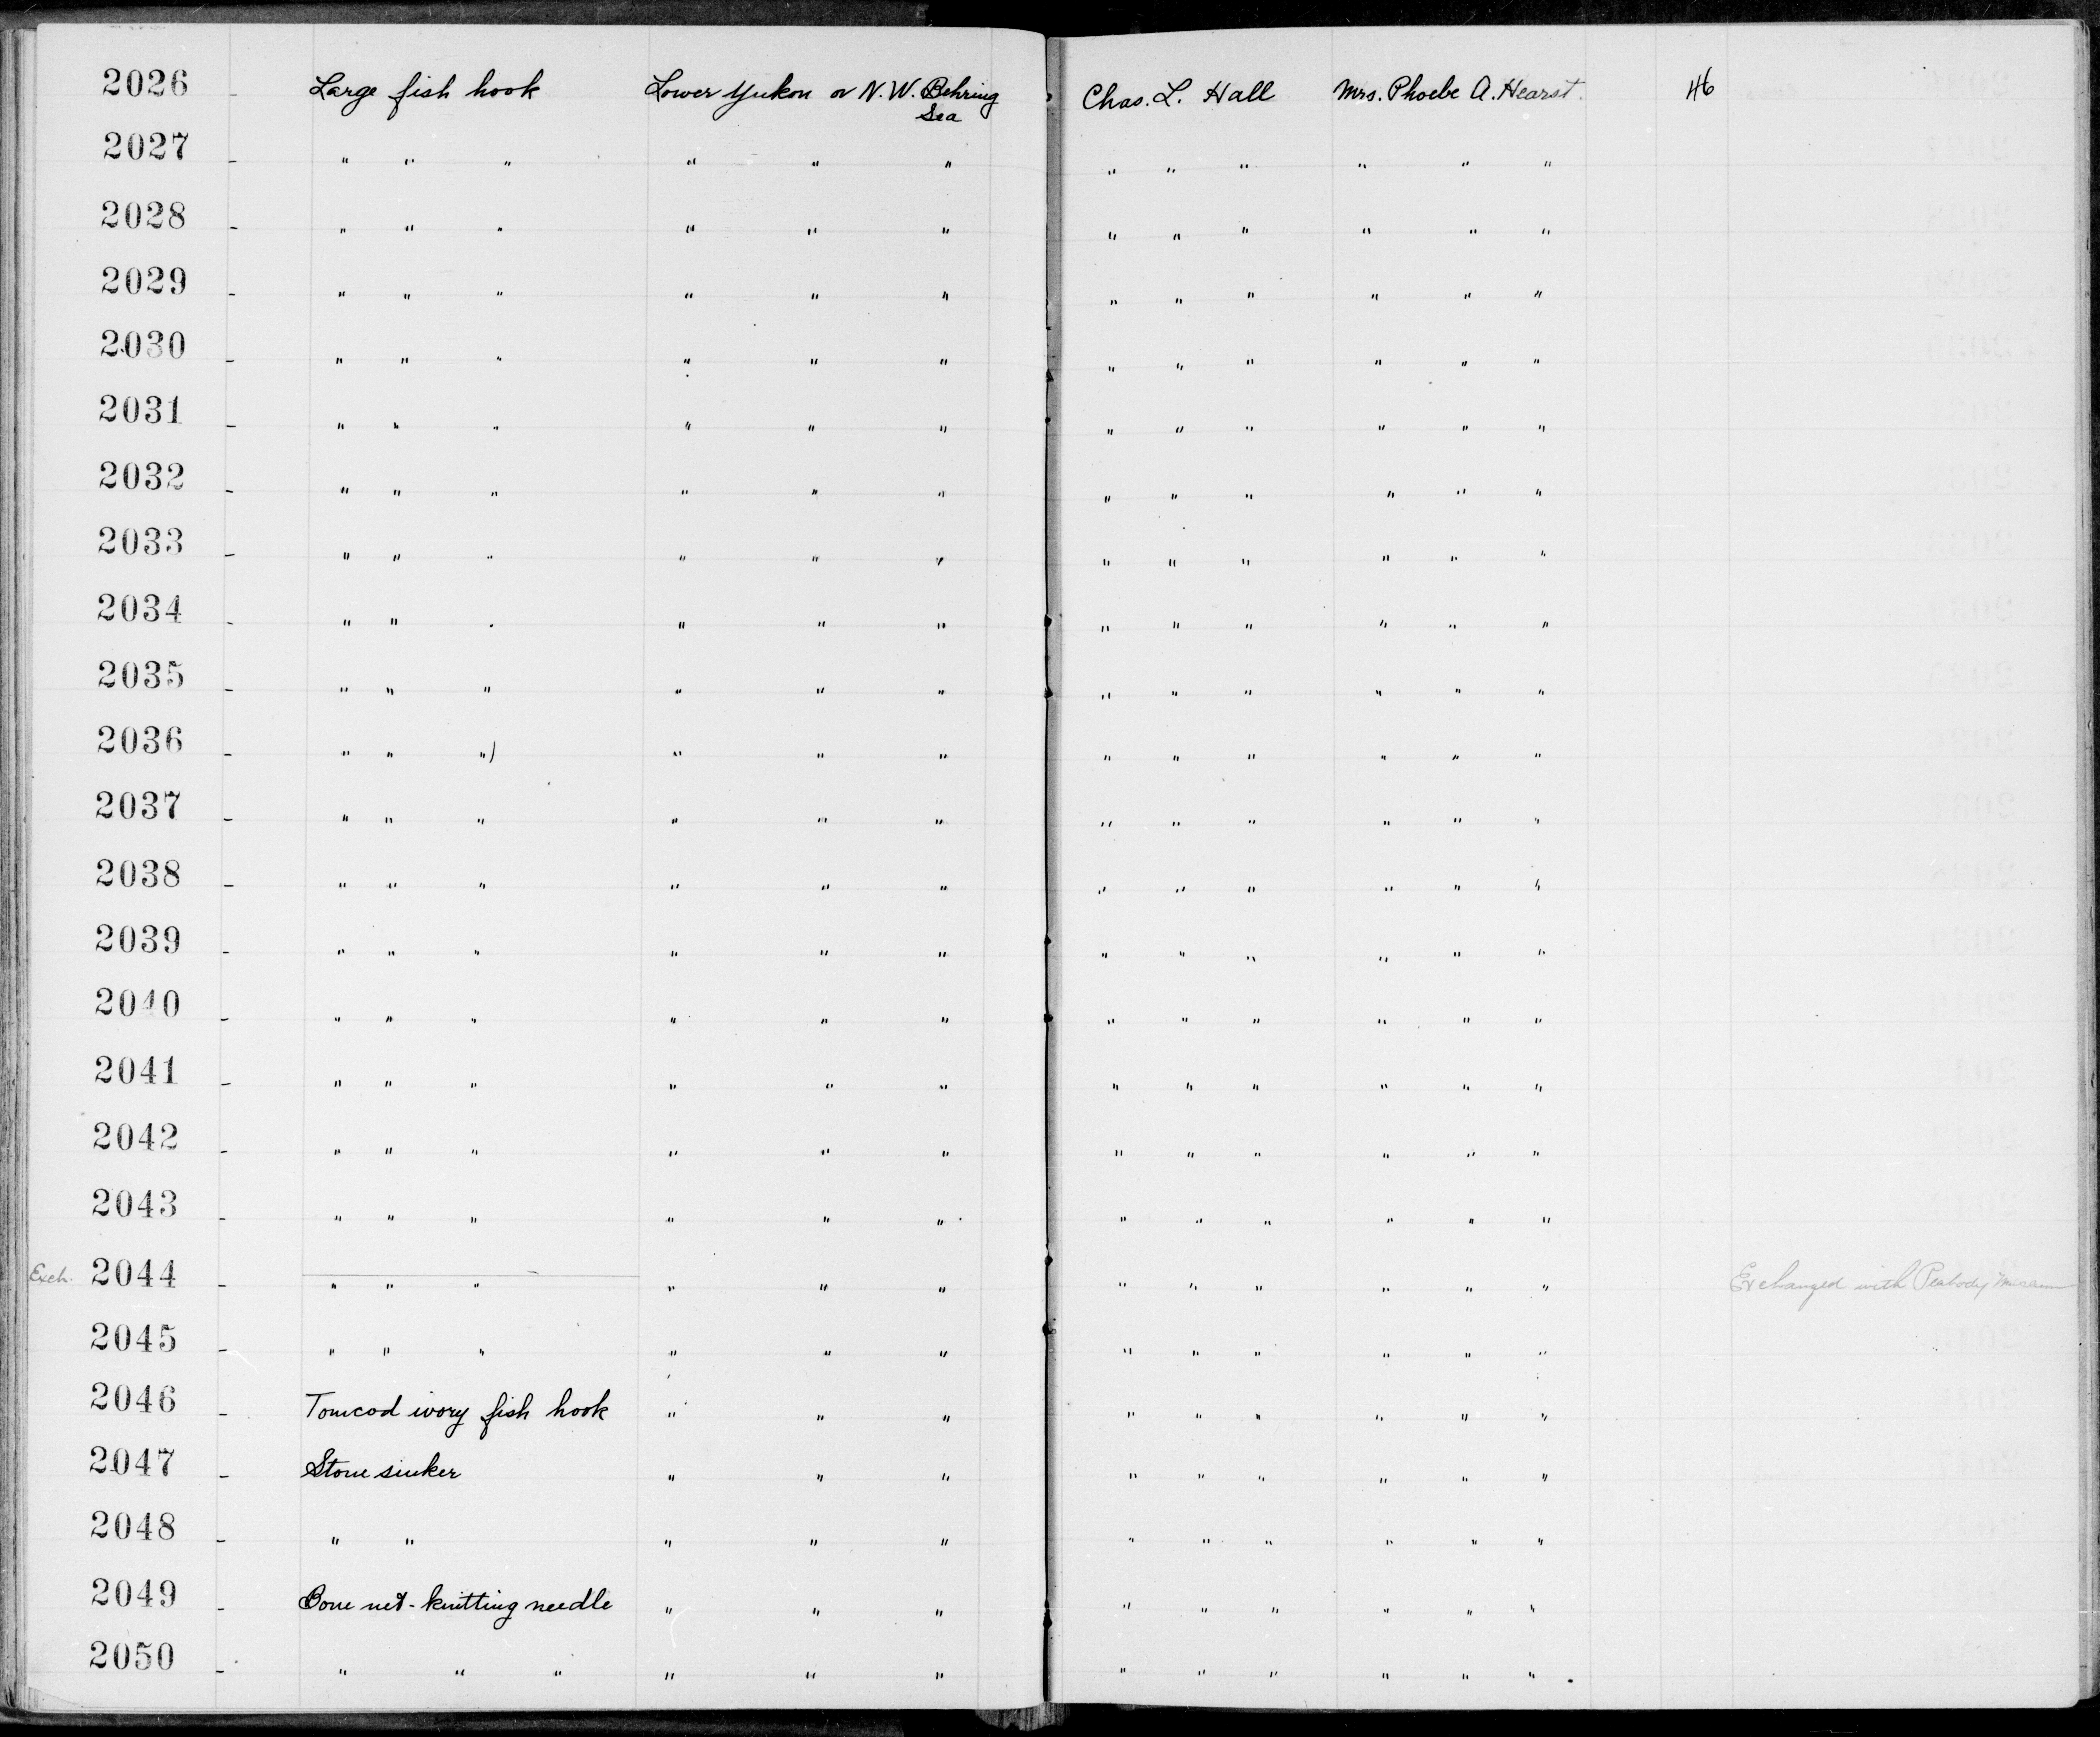 2026 - Large fish hook Lower Yukon or N.W. Behring Sea Chas. L. Hall Mrs. Phoebe A. Hearst. 46
2027 - " " " " " " " " " " " "
2028 - " " " " " " " " " " " "
2029 - " " " " " " " " " " " "
2030 - " " " " " " " " " " " "
2031 - " " " " " " " " " " " "
2032 - " " " " " " " " " " " "
2033 - " " " " " " " " " " " "
2034 - " " " " " " " " " " " "
2035 - " " " " " " " " " " " "
2036 - " " ") " " " " " " " " "
2037 - " " " " " " " " " " " "
2038 - " " " " " " " " " " " "
2039 - " " " " " " " " " " " "
2040 - " " " " " " " " " " " "
2041 - " " " " " " " " " " " "
2042 - " " " " " " " " " " " "
2043 - " " " " " " " " " " " "
Exch. 2044 - " " " " " " " " " " " " Exchanged with Peabody Museum
2045 - " " " " " " " " " " " "
2046 - Tomcod ivory fish hook " " " " " " " " "
2047 - Stone sinker " " " " " " " " "
2048 - " " " " " " " " " " "
2049 - Bone net-knitting needle " " " " " " " " "
2050 - " " " " " " " " " " " "